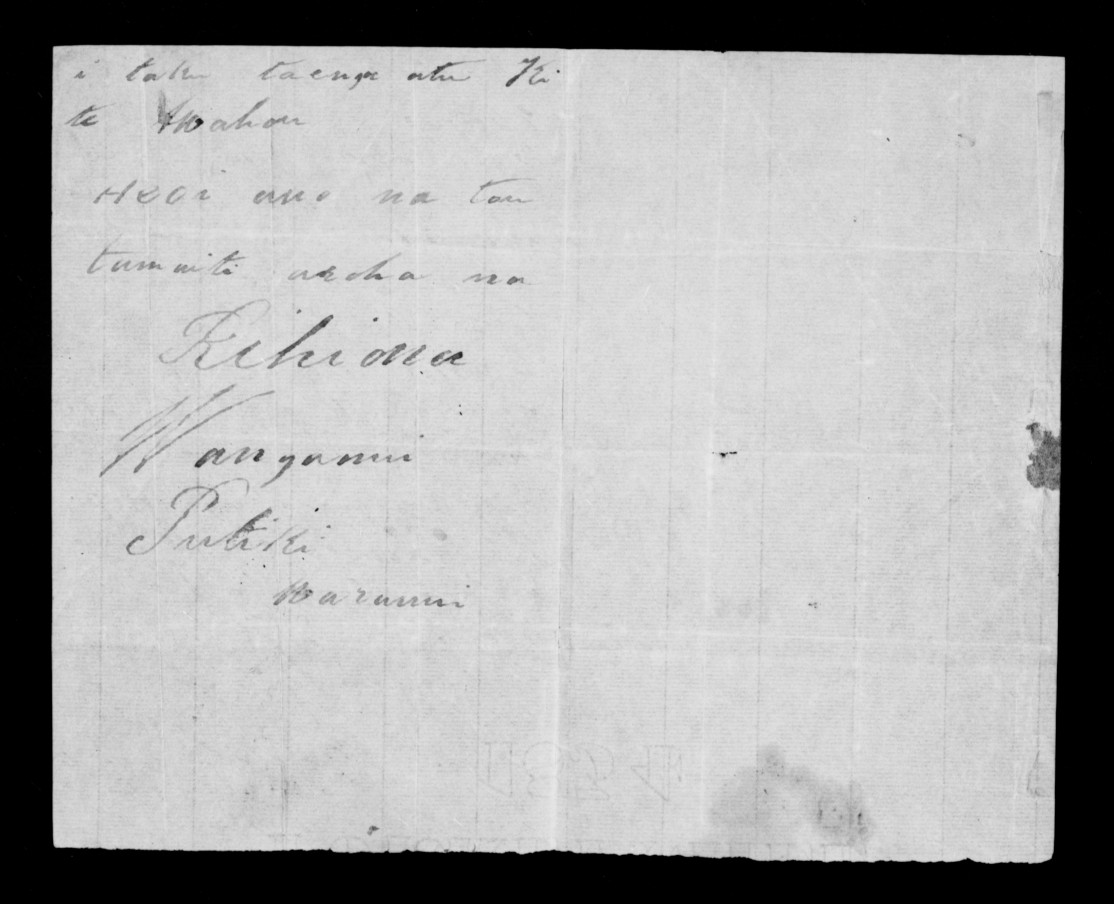 i taku taenga atu Ki
te Awahou
Heoi ano na tou
tamaiti aroha na
Wanganui
Putiki
waranui